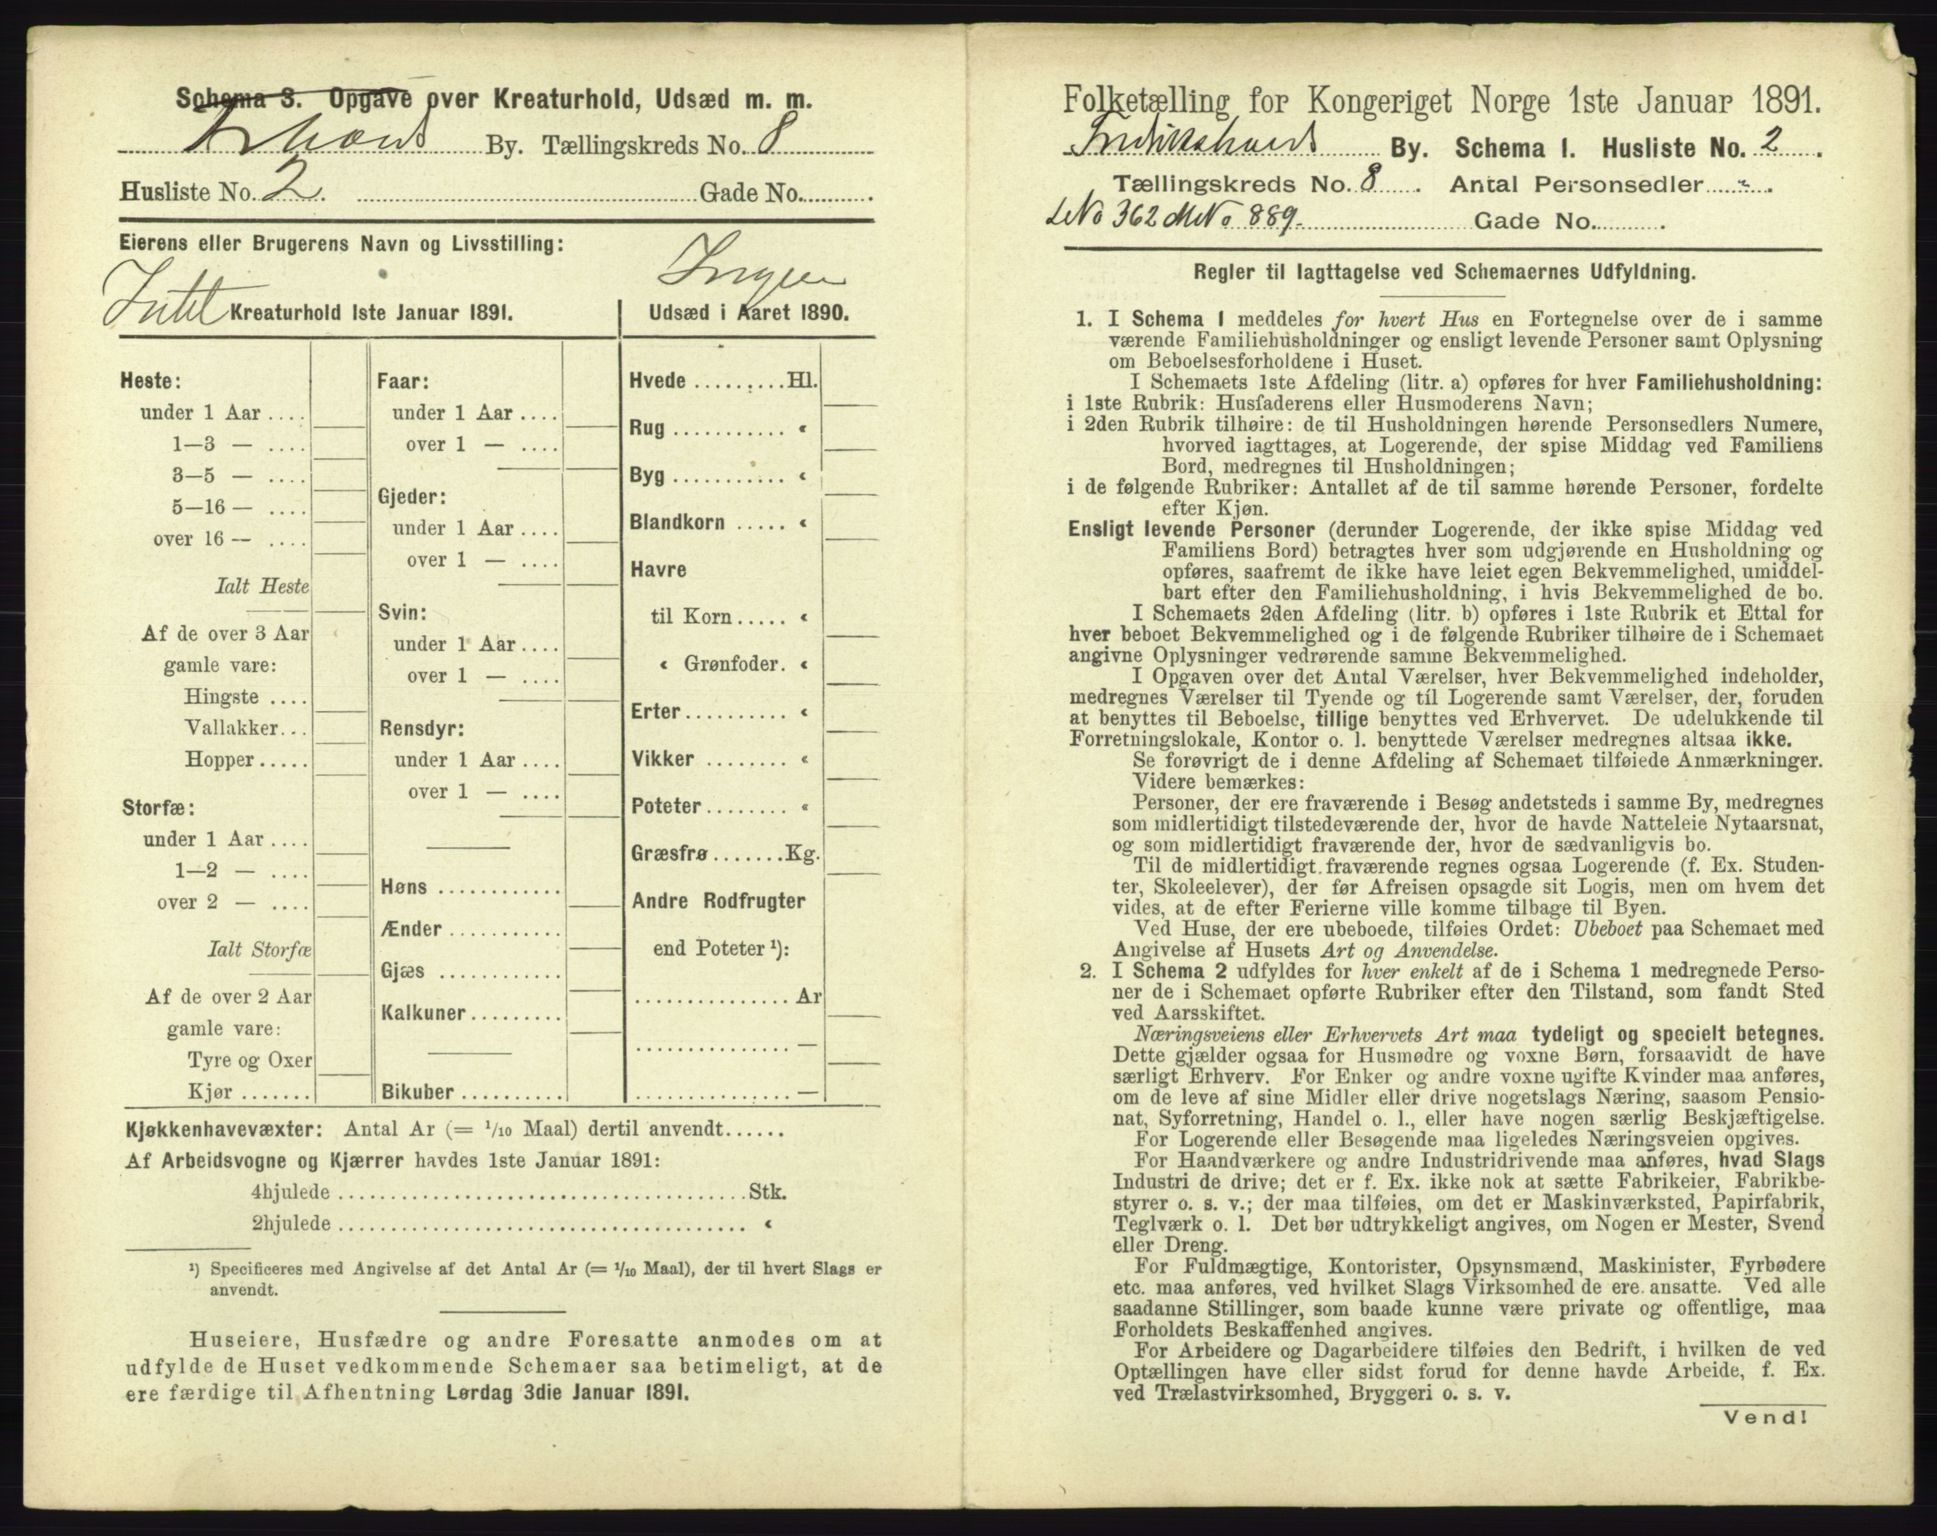 Schema 3. Opgave over Kreaturhold, Udsæd m. m.
Frhald By. Tællingskreds No. 8
Husliste No. 2. Gade No.
Eierens eller Brugerens Navn og Livsstilling:
Intet Kreaturhold 1ste Januar 1891.
Heste:
under 1 Aar ....
1—3 — ....
3—5 — ....
5—16 — ....
over 16 — ....
Ialt Heste
Af de over 3 Aar
gamle vare:
Hingste ....
Vallakker...
Hopper.....
Storfæ:
under 1 Aar....
1—2 — ....
over 2 — ....
Ialt Storfæ
Af de over 2 Aar
gamle vare:
Tyre og Oxer
Kjør .......
Faar:
under 1 Aar ....
over 1 — ....
Gjeder:
under 1 Aar ....
over 1 — ....
Svin:
under 1 Aar ....
over 1 — ....
Rensdyr:
under 1 Aar ....
over 1 — ....
Høns ............
Ænder ...........
Gjæs ............
Kalkuner.........
Bikuber ..........
Ingen
Udsæd i Aaret 1890.
Hvede .........Hl.
Rug ........... «
Byg ........... «
Blandkorn ..... «
Havre
til Korn..... «
« Grønfoder. «
Erter.......... «
Vikker ........ «
Poteter........ «
Græsfrø.......Kg.
Andre Rodfrugter
end Poteter ¹):
............... Ar
............... —
............... —
Kjøkkenhavevæxter: Antal Ar (= 1/10 Maal) dertil anvendt......
Af Arbeidsvogne og Kjærrer havdes 1ste Januar 1891:
4hjulede ....................................... Stk.
2hjulede ....................................... «
¹) Specificeres med Angivelse af det Antal Ar (= 1/10 Maal), der til hvert Slags er
anvendt.
Huseiere, Husfædre og andre Foresatte anmodes om at
udfylde de Huset vedkommende Schemaer saa betimeligt, at de
ere færdige til Afhentning Lørdag 3die Januar 1891.
Folketælling for Kongeriget Norge 1ste Januar 1891.
Fredrikshalds By. Schema 1. Husliste No. 2.
Tællingskreds No. 8. Antal Personsedler
LNo 362 MNo 889. Gade No.
Regler til Iagttagelse ved Schemaernes Udfyldning.
1. I Schema 1 meddeles for hvert Hus en Fortegnelse over de i samme
værende Familiehusholdninger og ensligt levende Personer samt Oplysning
om Beboelsesforholdene i Huset.
I Schemaets 1ste Afdeling (litr. a) opføres for hver Familiehusholdning:
i 1ste Rubrik: Husfaderens eller Husmoderens Navn;
i 2den Rubrik tilhøire: de til Husholdningen hørende Personsedlers Numere,
hvorved iagttages, at Logerende, der spise Middag ved Familiens
Bord, medregnes til Husholdningen;
i de følgende Rubriker: Antallet af de til samme hørende Personer, fordelte
efter Kjøn.
Ensligt levende Personer (derunder Logerende, der ikke spise Middag ved
Familiens Bord) betragtes hver som udgjørende en Husholdning og
opføres, saafremt de ikke have leiet egen Bekvemmelighed, umiddel-
bart efter den Familiehusholdning, i hvis Bekvemmelighed de bo.
I Schemaets 2den Afdeling (litr. b) opføres i 1ste Rubrik et Ettal for
hver beboet Bekvemmelighed og i de følgende Rubriker tilhøire de i Schemaet
angivne Oplysninger vedrørende samme Bekvemmelighed.
I Opgaven over det Antal Værelser, hver Bekvemmelighed indeholder,
medregnes Værelser til Tyende og til Logerende samt Værelser, der, foruden
at benyttes til Beboelse, tillige benyttes ved Erhvervet. De udelukkende til
Forretningslokale, Kontor o. l. benyttede Værelser medregnes altsaa ikke.
Se forøvrigt de i denne Afdeling af Schemaet tilføiede Anmærkninger.
Videre bemærkes:
Personer, der ere fraværende i Besøg andetsteds i samme By, medregnes
som midlertidigt tilstedeværende der, hvor de havde Natteleie Nytaarsnat,
og som midlertidigt fraværende der, hvor de sædvanligvis bo.
Til de midlertidigt fraværende regnes ogsaa Logerende (f. Ex. Studen-
ter, Skoleelever), der før Afreisen opsagde sit Logis, men om hvem det
vides, at de efter Ferierne ville komme tilbage til Byen.
Ved Huse, der ere ubeboede, tilføies Ordet: Ubeboet paa Schemaet med
Angivelse af Husets Art og Anvendelse.
2. I Schema 2 udfyldes for hver enkelt af de i Schema 1 medregnede Perso-
ner de i Schemaet opførte Rubriker efter den Tilstand, som fandt Sted
ved Aarsskiftet.
Næringsveiens eller Erhvervets Art maa tydeligt og specielt betegnes.
Dette gjælder ogsaa for Husmødre og voxne Børn, forsaavidt de have
særligt Erhverv. For Enker og andre voxne ugifte Kvinder maa anføres,
om de leve af sine Midler eller drive nogetslags Næring, saasom Pensio-
nat, Syforretning, Handel o. l., eller have nogen særlig Beskjæftigelse.
For Logerende eller Besøgende maa ligeledes Næringsveien opgives.
For Haandværkere og andre Industridrivende maa anføres, hvad Slags
Industri de drive; det er f. Ex. ikke nok at sætte Fabrikeier, Fabrikbe-
styrer o. s. v.; der maa tilføies, om det er Maskinværksted, Papirfabrik,
Teglværk o. l. Det bør udtrykkeligt angives, om Nogen er Mester, Svend
eller Dreng.
For Fuldmægtige, Kontorister, Opsynsmænd, Maskinister, Fyrbødere
etc. maa anføres, ved hvilket Slags Virksomhed de ere ansatte. Ved alle
saadanne Stillinger, som baade kunne være private og offentlige, maa
Forholdets Beskaffenhed angives.
For Arbeidere og Dagarbeidere tilføies den Bedrift, i hvilken de ved
Optællingen have eller sidst forud for denne havde Arbeide, f. Ex.
ved Trælastvirksomhed, Bryggeri o. s. v.
Vend!